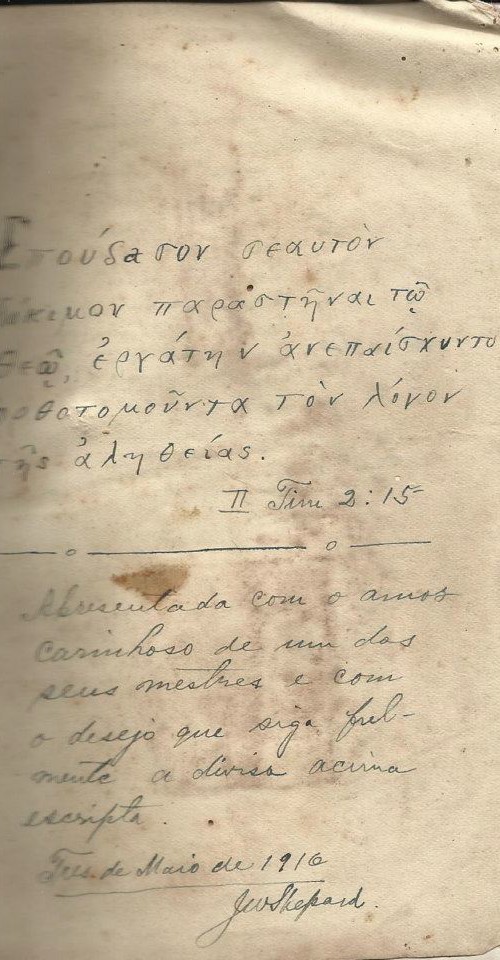 Σπούδασον σεαυτὸν
δόκιμον παραστῆναι τῷ
θεῷ, ἐργάτην ἀνεπαίσχυντο
ρθοτομοῦντα τὸν λόγον
τῆς ἀληθείας.
II Tim 2:15
Apresentada com o amor
carinhoso de um dos
seus mestres e com
o desejo que siga fiel-
mente a divisa acima
escripta.
Tres de Maio de 1916
JWShepard.